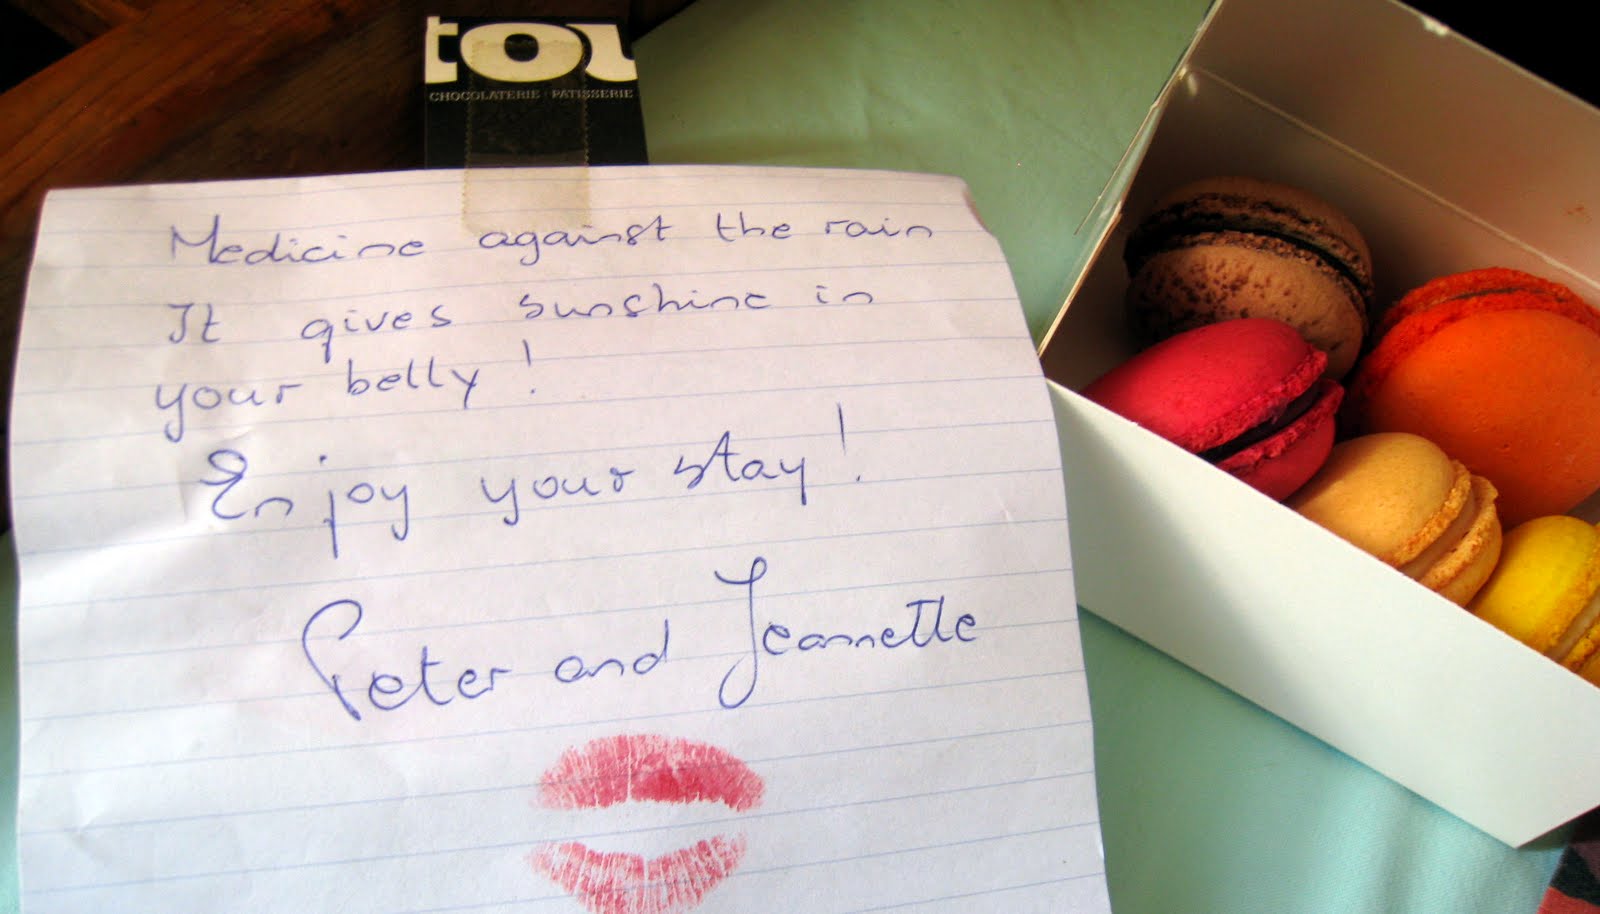 tou
CHOCOLATERIE · PATISSERIE
Medicine against the rain
It gives sunshine in
your belly!
Enjoy your stay!
Peter and Jeannette